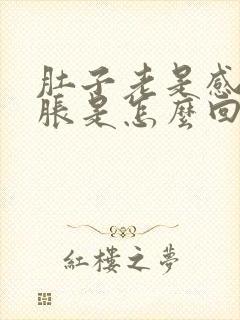 肚子老是感
脹是怎麼回
紅樓之夢